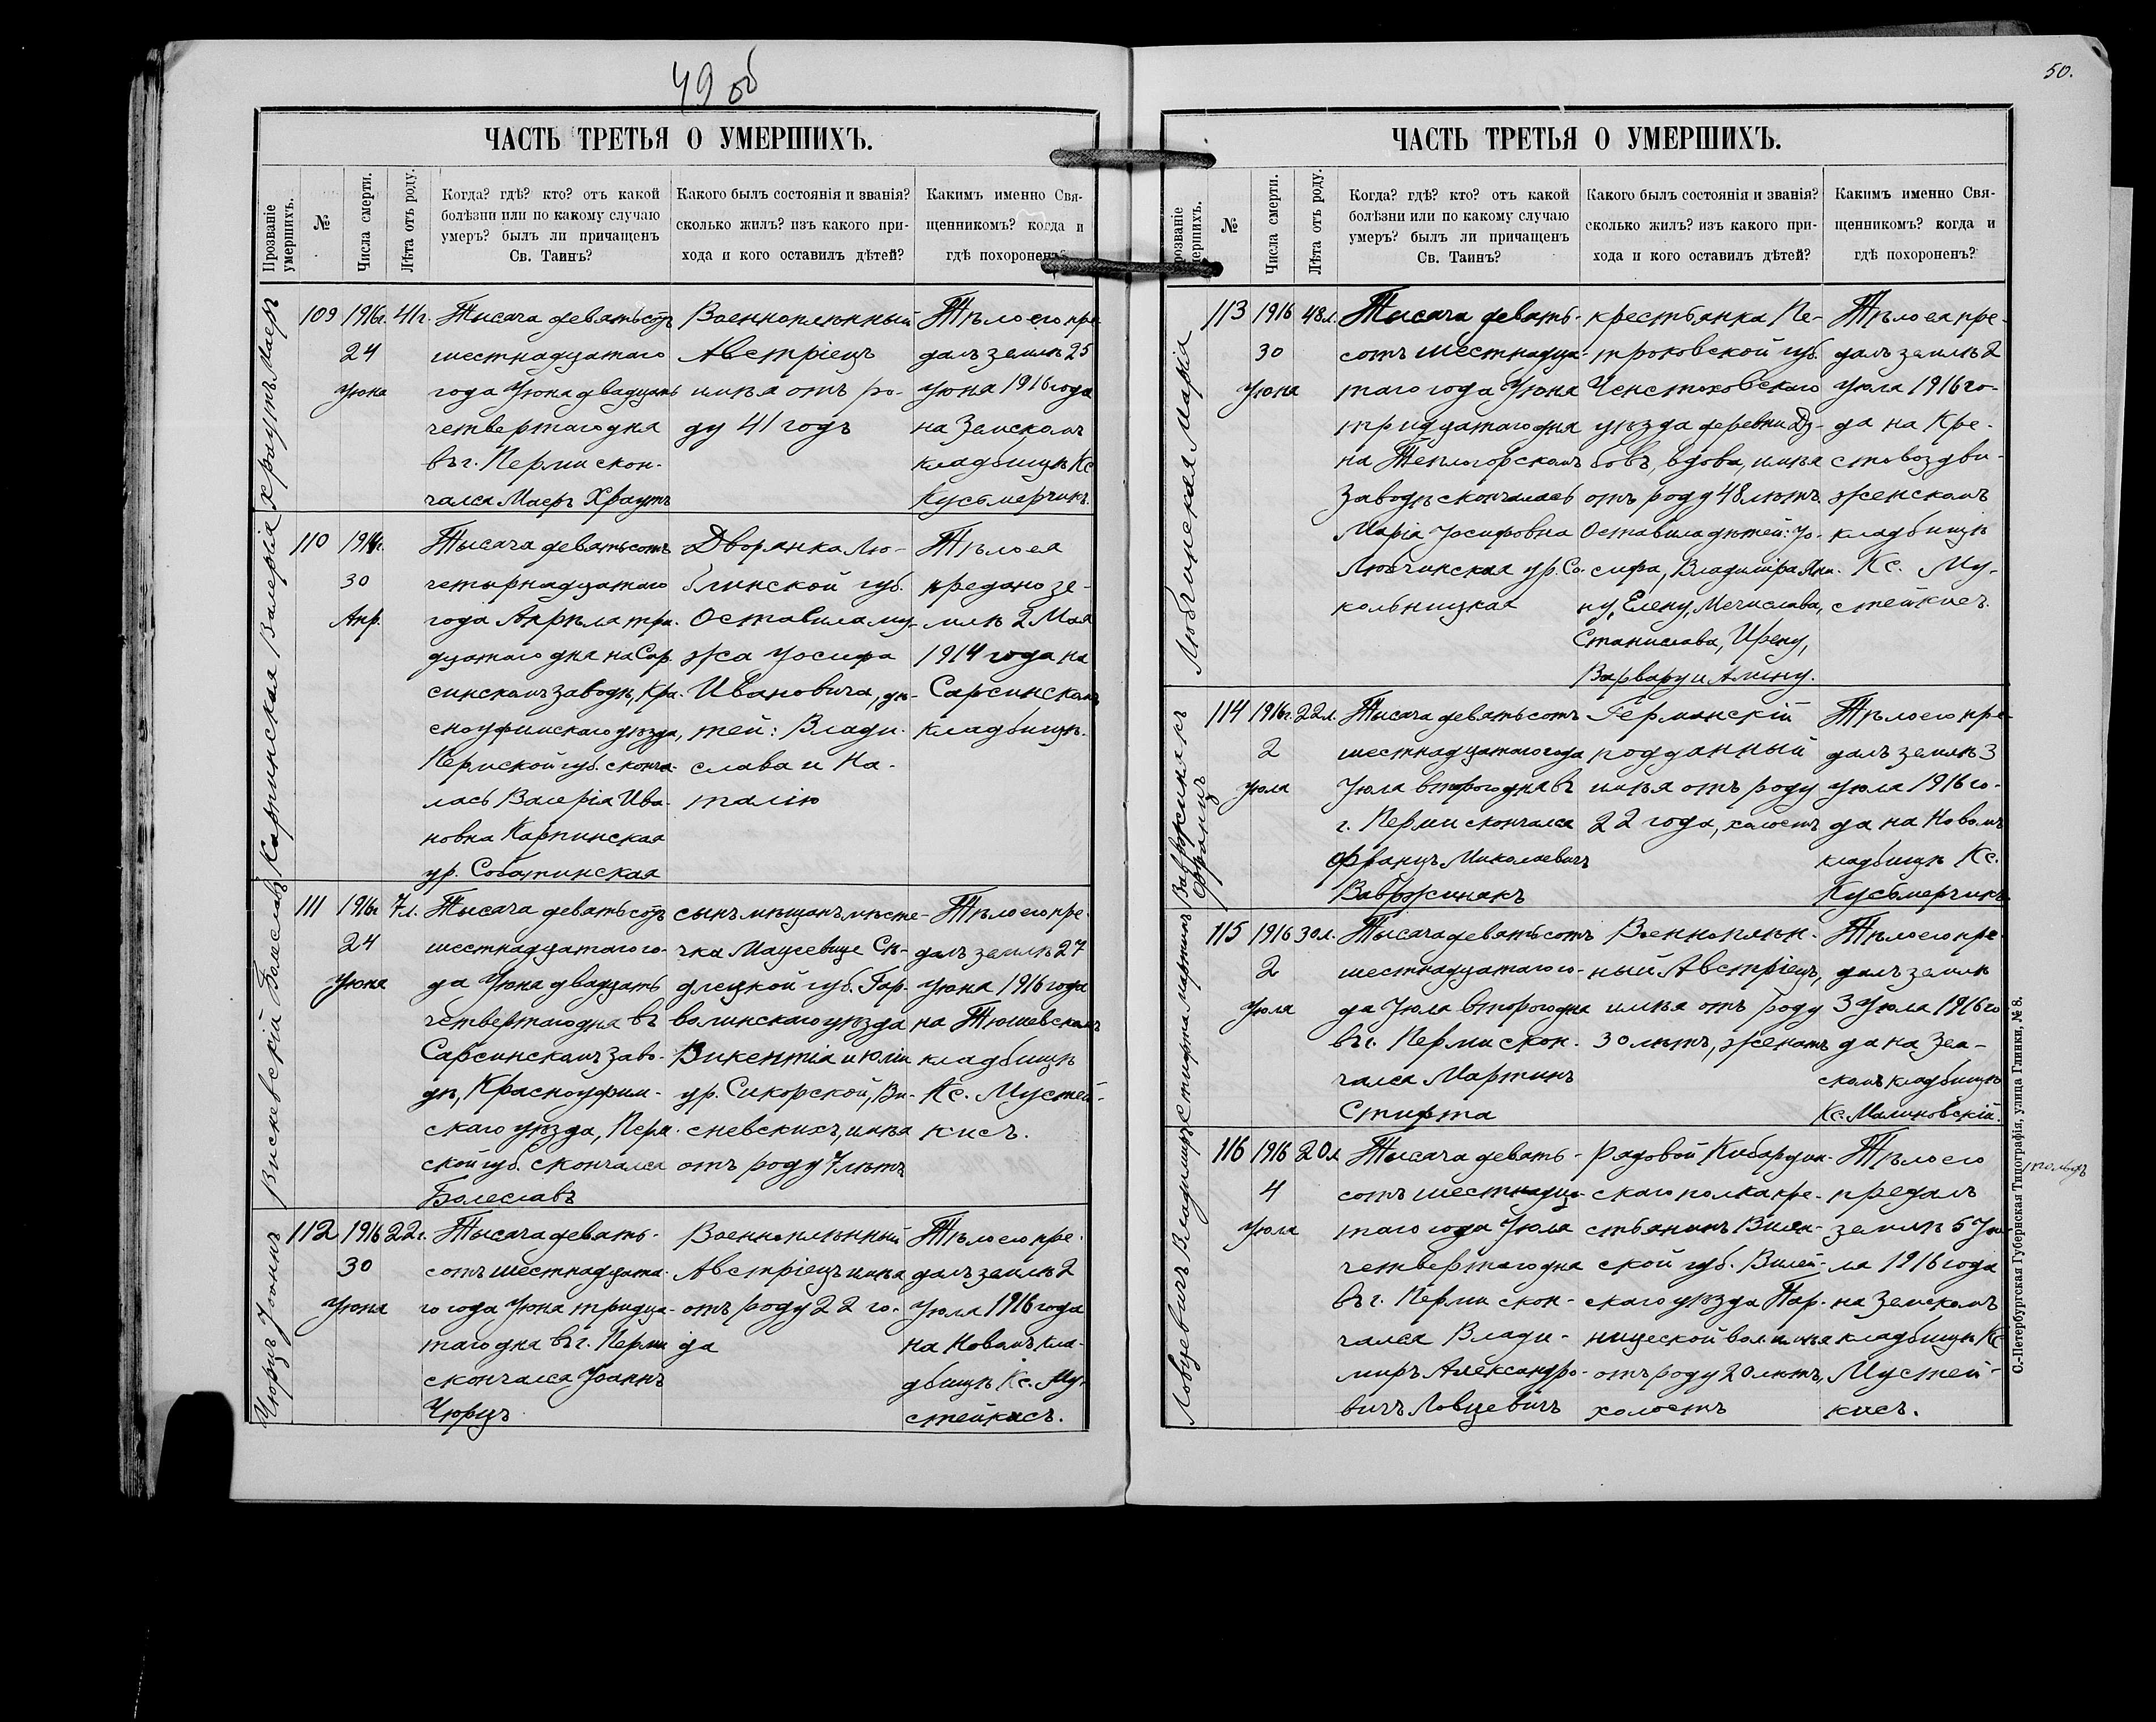 49 об
ЧАСТЬ ТРЕТЬЯ О УМЕРШИХЪ.
Прозваніе умершихъ.
№
Числа смерти.
Лѣта отъ роду.
Когда? гдѣ? кто? отъ какой
болѣзни или по какому случаю
умеръ? былъ ли причащенъ
Св. Таинъ?
Какого былъ состоянія и званія?
сколько жилъ? изъ какого при-
хода и кого оставилъ дѣтей?
Какимъ именно Свя-
щенникомъ? когда и
гдѣ похороненъ?
Храутъ Маеръ
109
1916г.
24
Іюна
41г.
Тысяча девятьсотъ
шестнадцатаго
года Іюна двадцать
четвертаго дня
въ г. Перми скон-
чался Маеръ Храутъ
Военноплѣнный
Австріецъ
имѣя отъ ро-
ду 41 годъ
Тѣло его пре-
далъ землѣ 25
Іюна 1916 года
на Земскомъ
кладбищѣ Кс.
Кусьмерчикъ.
Карпинская Валерія
110
1914г.
30
Апр.
Тысяча девятьсотъ
четырнадцатаго
года Апрѣля три-
дцатаго дня на Сар-
синскомъ заводѣ, Кра-
сноуфимскаго уѣзда,
Пермской губ. сконча-
лась Валерія Ива-
новна Карпинская
ур. Собатинская
Дворянка Лю-
блинской губ.
Оставила му-
жа Іосифа
Ивановича, дѣ-
тей: Влади-
слава и На-
талію
Тѣло ея
предано зе-
млѣ 2 Мая
1914 года на
Сарсинскомъ
кладбищѣ.
Висневскій Болеславъ
111
1916г
24
Іюна
7л.
Тысяча девятьсотъ
шестнадцатаго го-
да Іюна двадцать
четвертаго дня въ
Сарсинскомъ заво-
дѣ, Красноуфим-
скаго уѣзда, Перм-
ской губ. скончался
Болеславъ
сынъ мѣщанъ мѣсте-
чка Мацѣевице Сѣ-
длецкой губ. Гар-
волинскаго уѣзда
Викентія и Юліи
ур. Сикорской, Ви-
сневскихъ, имѣя
отъ роду 7 лѣтъ
Тѣло его пре-
далъ землѣ 27
Іюна 1916 года
на Тюшевскомъ
кладбищѣ
Кс. Мустей-
кисъ.
Чюрцъ Іоаннъ
112
1916
30
Іюна
22г.
Тысяча девять-
сотъ шестнадцата-
го года Іюна тридца-
таго дня въ г. Перми
скончался Іоаннъ
Чюрцъ
Военноплѣнный
Австріецъ имѣя
отъ роду 22 го-
да
Тѣло его пре-
далъ землѣ 2
Іюля 1916 года
на Новомъ кла-
дбищѣ Кс. Му-
стейкисъ.
50.
ЧАСТЬ ТРЕТЬЯ О УМЕРШИХЪ.
Прозваніе умершихъ.
№
Числа смерти.
Лѣта отъ роду.
Когда? гдѣ? кто? отъ какой
болѣзни или по какому случаю
умеръ? былъ ли причащенъ
Св. Таинъ?
Какого былъ состоянія и званія?
сколько жилъ? изъ какого при-
хода и кого оставилъ дѣтей?
Какимъ именно Свя-
щенникомъ? когда и
гдѣ похороненъ?
Любчинская Марія
113
1916
30
Іюна
48л.
Тысяча девять-
сотъ шестнадца-
таго года Іюна
тридцатаго дня
на Теплогорскомъ
заводѣ скончалась
Марія Іосифовна
Любчинская ур. Со-
кольницкая
крестьянка Пе-
троковской губ.
Ченстоховскаго
уѣзда деревни Дз-
бовъ, вдова, имѣя
отъ роду 48 лѣтъ.
Оставила дѣтей: Іо-
сифа, Владиміра, Яни-
ну, Елену, Мечислава,
Станислава, Ирену,
Варвару и Алину.
Тѣло ея пре-
далъ землѣ 2
Іюля 1916 го-
да на Кре-
стовоздви-
женскомъ
кладбищѣ
Кс. Му-
стейкисъ.
Вавржинякъ Францъ
114
1916г.
2
Іюла
22л.
Тысяча девятьсотъ
шестнадцатаго года
Іюла второго дня въ
г. Перми скончался
Францъ Миколаевичъ
Вавржинякъ
Германскій
подданный
имѣя отъ роду
22 года, холостъ
Тѣло его пре-
далъ землѣ 3
Іюла 1916 го-
да на Новомъ
кладбищѣ Кс.
Кусьмерчикъ.
Стифта Мартинъ
115
1916
2
Іюла
30л.
Тысяча девятьсотъ
шестнадцатаго го-
да Іюла второго дня
въ г. Перми скон-
чался Мартинъ
Стифта
Военноплѣн-
ный Австріецъ,
имѣя отъ роду
30 лѣтъ, женатъ
Тѣло его пре-
далъ землѣ
3 Іюла 1916 го
да на Зем-
скомъ кладбищѣ
Кс. Малиновскій.
Ловцевичъ Владиміръ
116
1916
4
Іюла
20л
Тысяча девять-
сотъ шестнадца-
таго года Іюла
четвертаго дня
въ г. Перми скон-
чался Влади-
міръ Александро-
вичъ Ловцевичъ
Рядовой Кабардин-
скаго полка кре-
стьянинъ Вилен-
ской губ. Вилей-
скаго уѣзда Пар-
ницеской вол. имѣя
отъ роду 20 лѣтъ,
холостъ
Тѣло его
предалъ
землѣ 5 Ію-
ла 1916 года
на Земскомъ
кладбищѣ Кс
Мустей-
кисъ.
С.-Петербургская Губернская Типографія, улица Глинки, № 8.